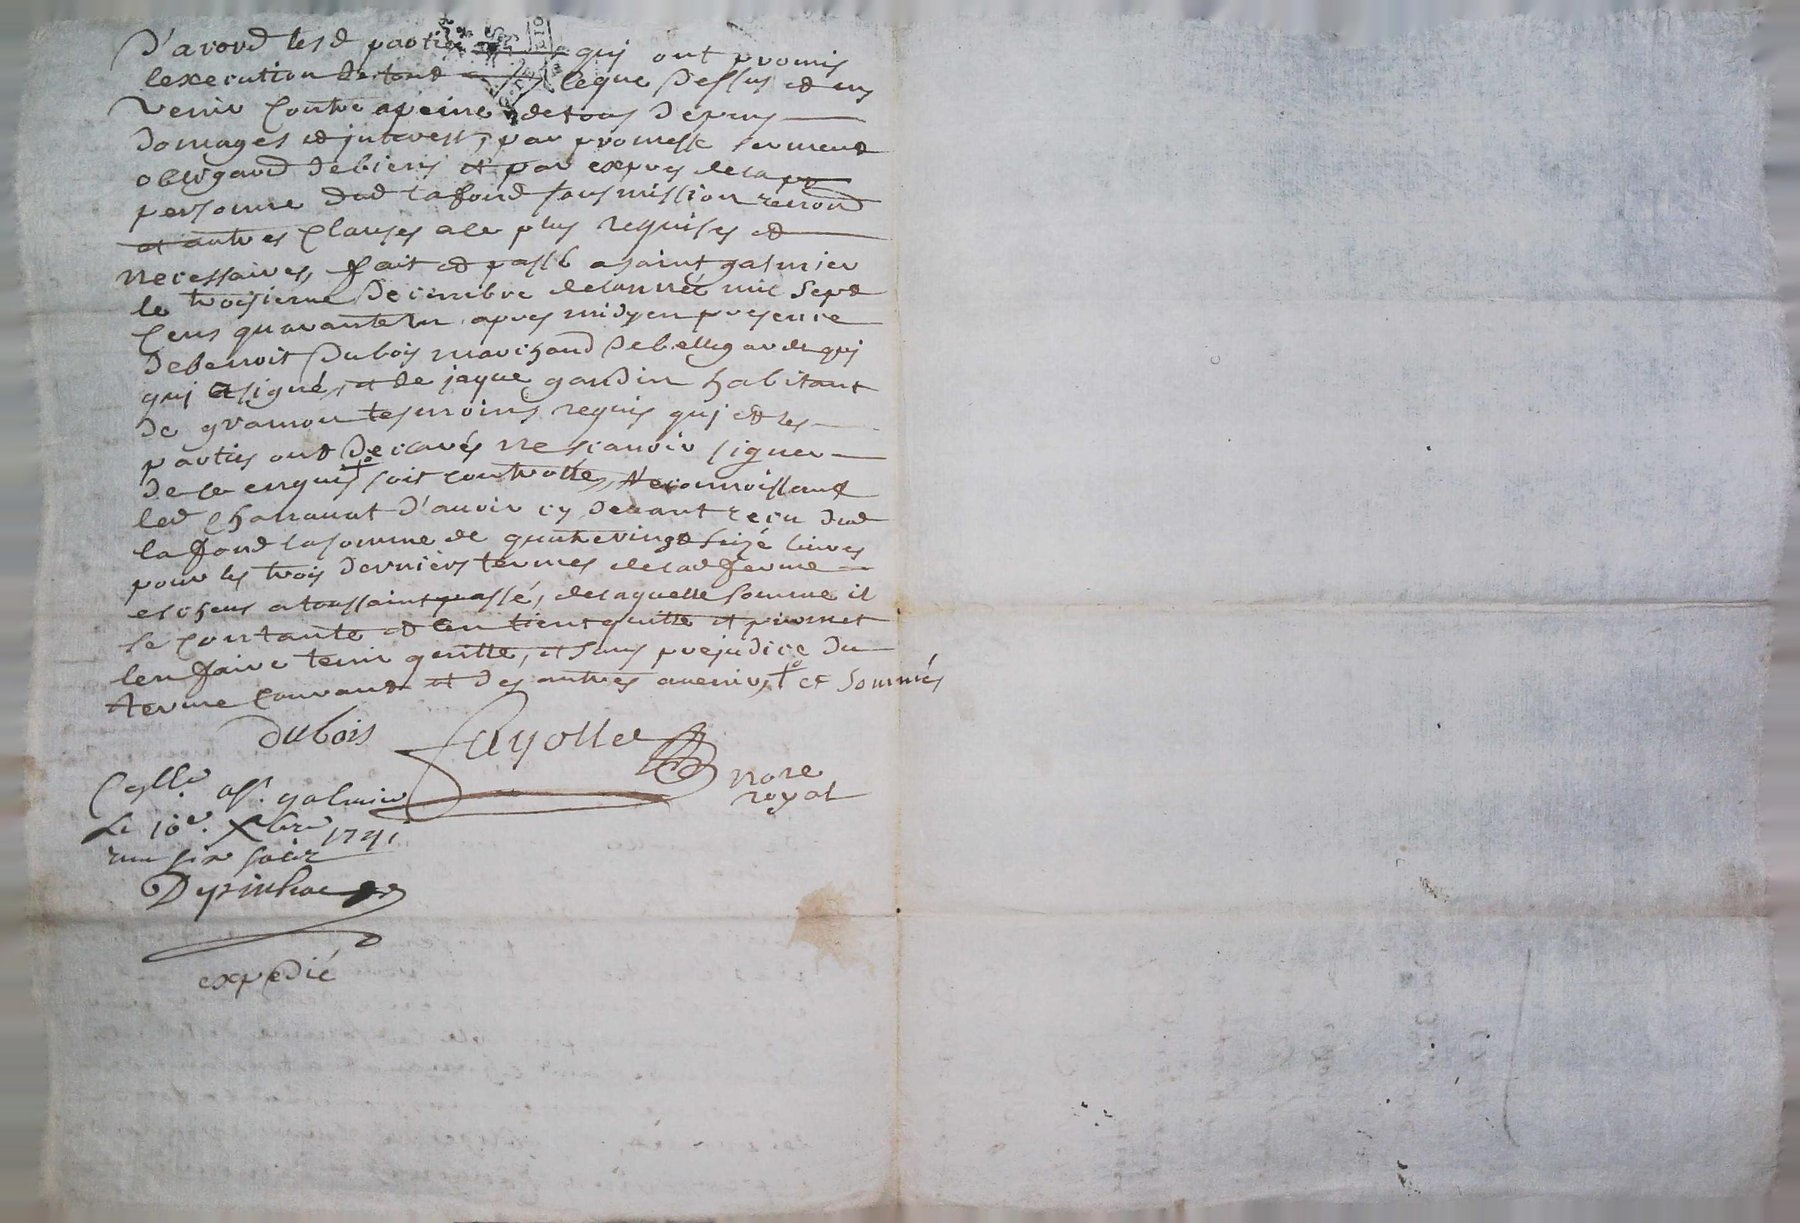 D'acord lesd parties qui ont promis
lexecution de tout ce que dessus et ny
venir contre a peine de tous depens
domages et interests, par promesse serment
obligaon de biens et par expres de la
personne dud lafond soumission renon
et autres clauses a ce plus requises et
necessaires, fait et passé a saint galmier
le troisieme decembre de lannée mil sept
cens quarante un apres midy en presence
de benoit Dubois marchand de bellegarde qui
qui a signé, et de jaque gaudin habitant
de gramon tesmoins requis qui et les
parties ont declarés ne scauoir signer
de ce enquis + soit controllé, reconnoissant
led Charrauat d'auoir cy deuant receu dud
lafond la somme de quatrevingt seize liures
pour les trois derniers termes de lad ferme
escheus a toussaint passé, de laquelle somme il
se contante et len tient quitte et promet
len faire tenir quitte, et sans prejudice du
terme courant et des autres auenir, + et sommés
dubois fayolle
no re
royal
Con.lle a St. galmier
Le 10e. Xbre 1741
recu six sols
expedié